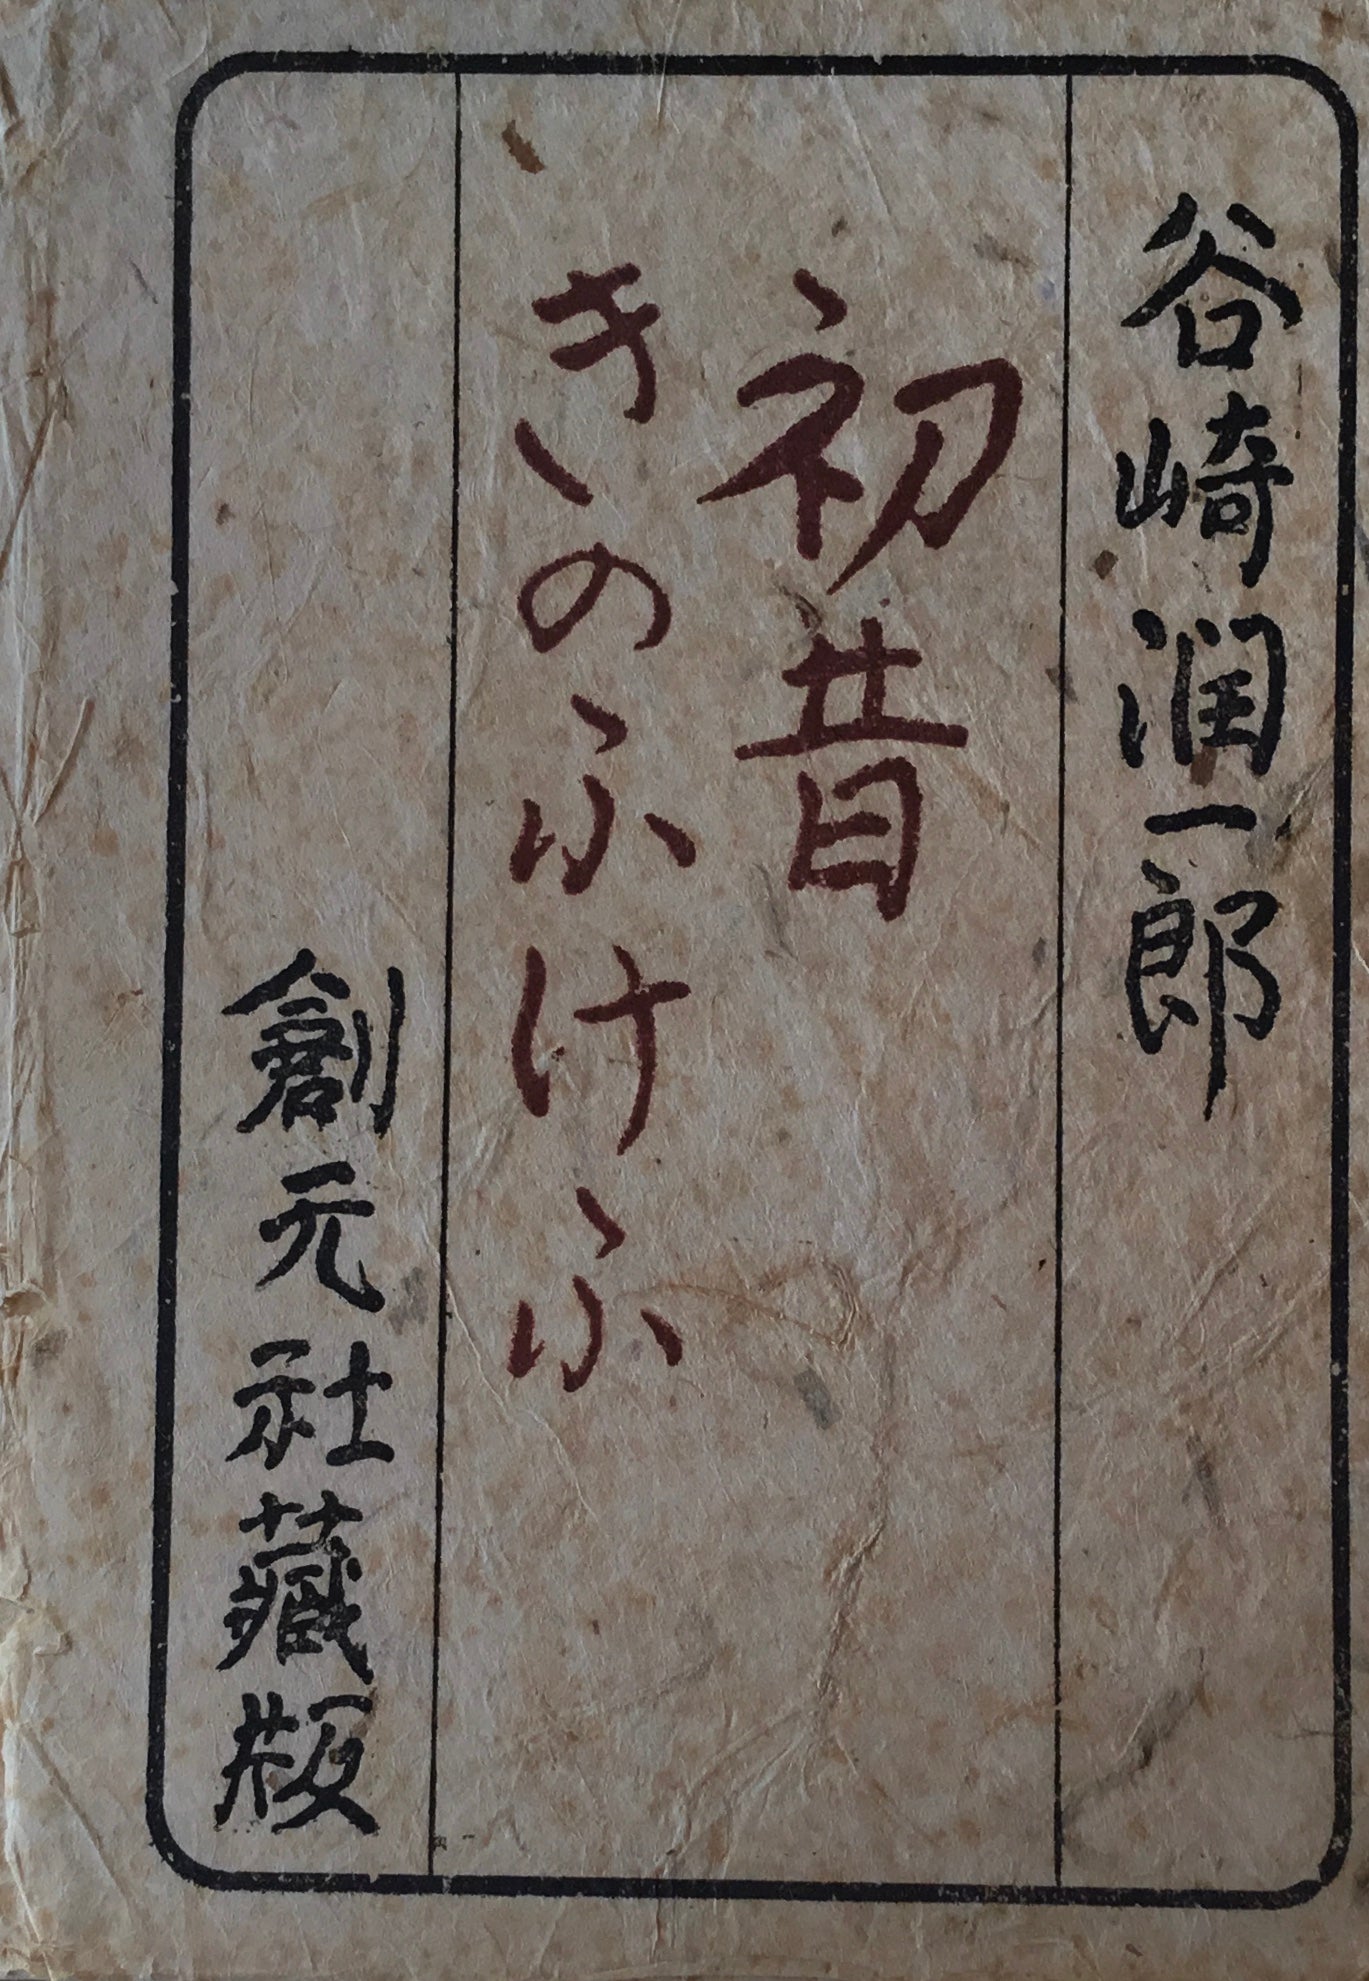 谷崎潤一郎
初昔
きのふけふ
創元社藏版